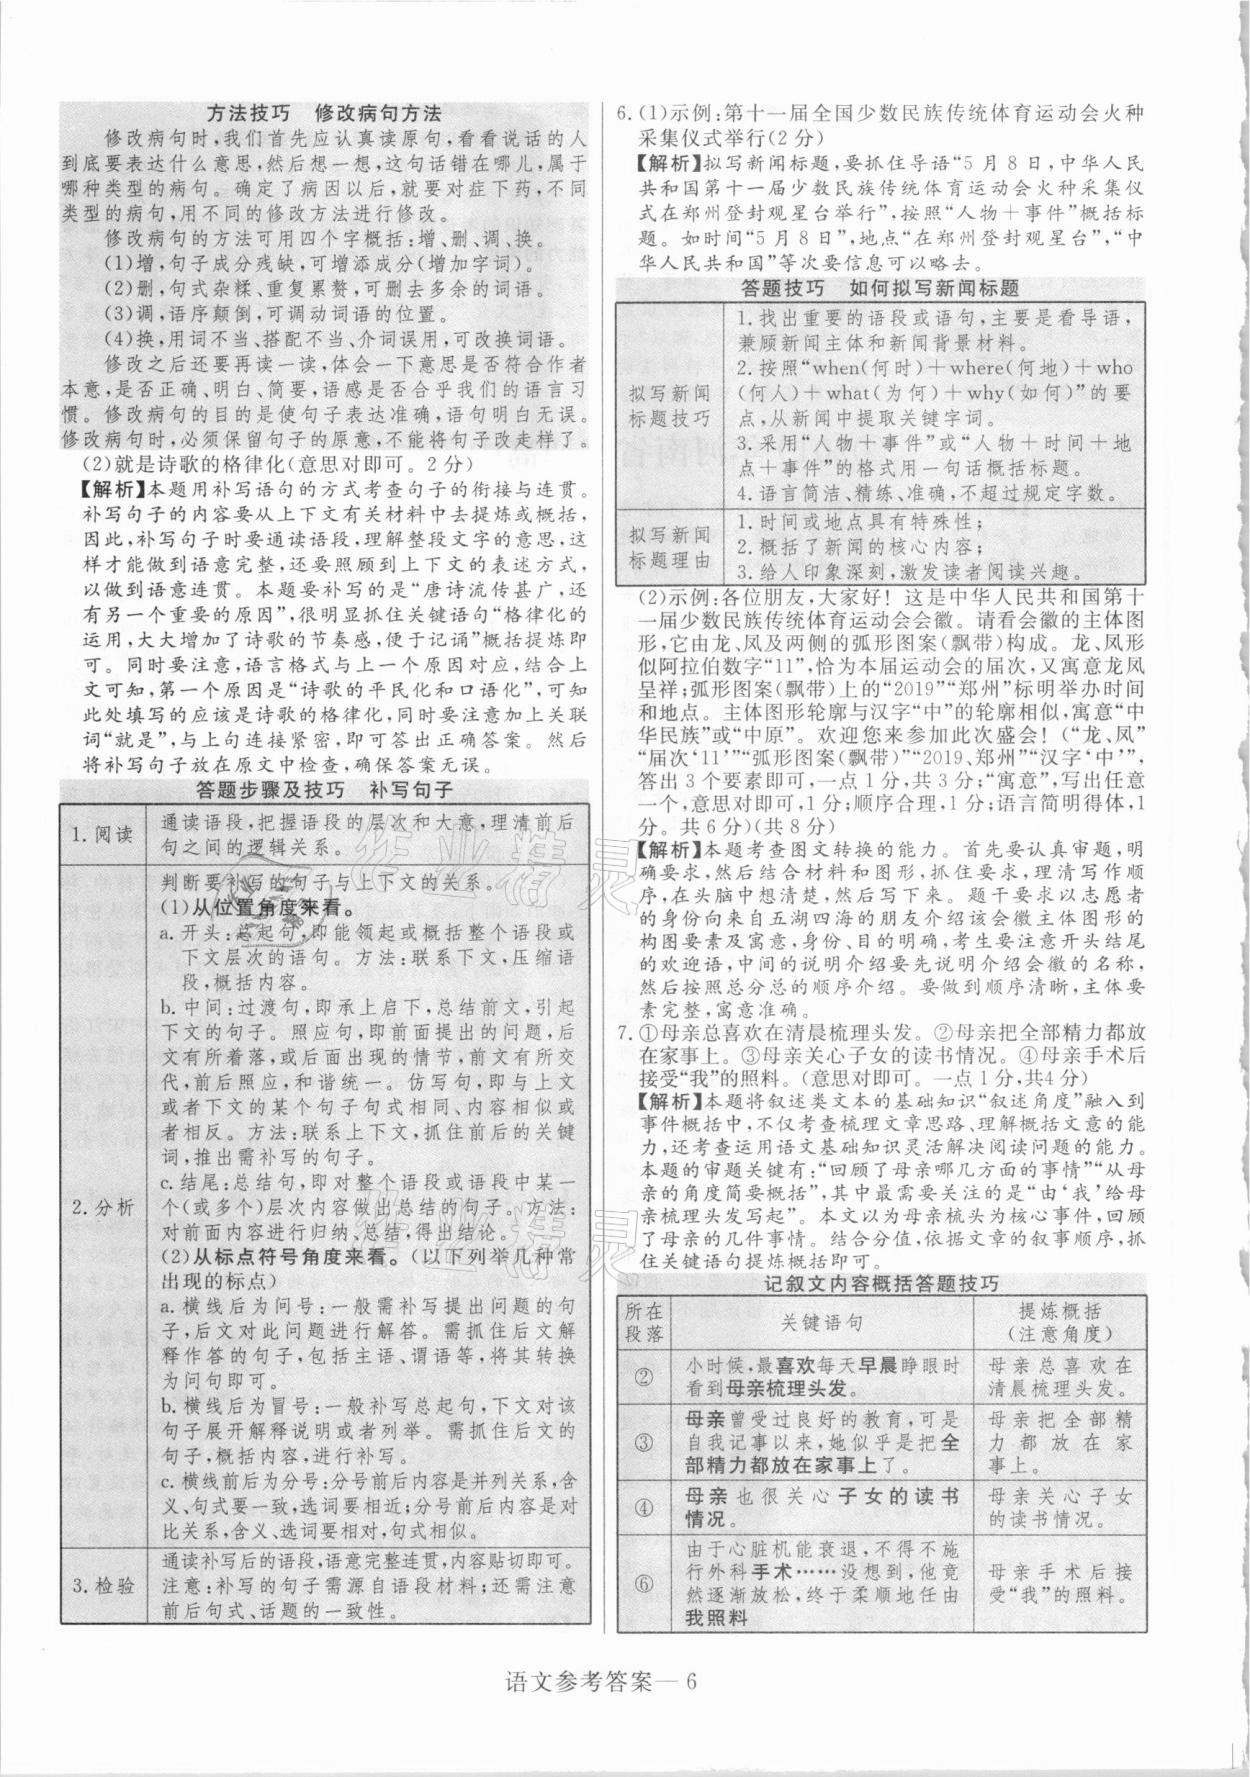 方法技巧　修改病句方法
修改病句时,我们首先应认真读原句,看看说话的人
到底要表达什么意思,然后想一想,这句话错在哪儿,属于
哪种类型的病句。确定了病因以后,就要对症下药,不同
类型的病句,用不同的修改方法进行修改。
修改病句的方法可用四个字概括:增、删、调、换。
(1)增,句子成分残缺,可增添成分(增加字词)。
(2)删,句式杂糅、重复累赘,可删去多余的词语。
(3)调,语序颠倒,可调动词语的位置。
(4)换,用词不当、搭配不当、介词误用,可改换词语。
修改之后还要再读一读,体会一下意思是否符合作者
本意,是否正确、明白、简要,语感是否合乎我们的语言习
惯。修改病句的目的是使句子表达准确,语句明白无误。
修改病句时,必须保留句子的原意,不能将句子改走样了。
(2)就是诗歌的格律化(意思对即可。2分)
【解析】本题用补写语句的方式考查句子的衔接与连贯。
补写句子的内容要从上下文有关材料中去提炼或概括,
因此,补写句子时要通读语段,理解整段文字的意思,这样
才能做到语意完整,还要照顾到上下文的表述方式,
以做到语意连贯。本题要补写的是“唐诗流传甚广,还
有另一个重要的原因”,很明显抓住关键语句“格律化的
运用,大大增加了诗歌的节奏感,便于记诵”概括提炼即
可。同时要注意,语言格式与上一个原因对应,结合上
文可知,第一个原因是“诗歌的平民化和口语化”,可知
此处填写的应该是诗歌的格律化,同时要注意加上关联
词“就是”,与上句连接紧密,即可答出正确答案。然后
将补写句子放在原文中检查,确保答案无误。
答题步骤及技巧　补写句子
1.阅读
通读语段,把握语段的层次和大意,理清前后
句之间的逻辑关系。
2.分析
判断要补写的句子与上下文的关系。
(1)从位置角度来看。
a.开头:总起句,即能领起或概括整个语段或
下文层次的语句。方法:联系下文,压缩语
段,概括内容。
b.中间:过渡句,即承上启下,总结前文,引起
下文的句子。照应句,即前面提出的内容,后
文有所着落,或后面出现的情节,前文有所交
代,前后照应,和谐统一。仿写句,即与上文
或者下文的某个句子句式相同、内容相似或
者相反。方法:联系上下文,抓住前后的关键
词,推出需补写的句子。
c.结尾:总结句,即对整个语段或语段中某一
个(或多个)层次内容做出总结的句子。方法:
对前面内容进行归纳、总结,得出结论。
(2)从标点符号角度来看。(以下列举几种常
出现的标点)
a.横线后为问号:一般需补写提出问题的句
子,后文对此问题进行解答。需抓住后文解
释作答的句子,包括主语、谓语等,将其转换
为问句即可。
b.横线后为冒号:一般补写总起句,下文对该
句子展开解释说明或者列举。需抓住后文的
句子,概括内容,进行补写。
c.横线前后为分号:分号前后内容是并列关系,含
义、句式要一致,选词要相近;分号前后内容是对
比关系,含义、选词要相对,句式相似。
3.检验
通读补写后的语段,语意完整连贯,内容贴切即可。
注意:补写的句子需源自语段材料;还需注意
前后句式、话题的一致性。
6.(1)示例:第十一届全国少数民族传统体育运动会火种
采集仪式举行(2分)
【解析】拟写新闻标题,要抓住导语“5月8日,中华人民
共和国第十一届少数民族传统体育运动会火种采集仪
式在郑州登封观星台举行”,按照“人物+事件”概括标
题。如时间“5月8日”,地点“在郑州登封观星台”,“中
华人民共和国”等次要信息可以略去。
答题技巧　如何拟写新闻标题
拟写新闻
标题技巧
1.找出重要的语段或语句,主要是看导语,
兼顾新闻主体和新闻背景材料。
2.按照“when(何时)+where(何地)+who
(何人)+what(为何)+why(如何)”的要
点,从新闻中提取关键字词。
3.采用“人物+事件”或“人物+时间+地
点+事件”的格式用一句话概括标题。
4.语言简洁、精练、准确,不超过规定字数。
拟写新闻
标题理由
1.时间或地点具有特殊性;
2.概括了新闻的核心内容;
3.给人印象深刻,激发读者阅读兴趣。
(2)示例:各位朋友,大家好!这是中华人民共和国第十
一届少数民族传统体育运动会会徽。请看会徽的主体图
形,它由龙、凤及两侧的弧形图案(飘带)构成。龙、凤形
似阿拉伯数字“11”,恰为本届运动会的届次,又寓意龙凤
呈祥;弧形图案(飘带)上的“2019”“郑州”标明举办时间
和地点。主体图形轮廓与汉字“中”的轮廓相似,寓意“中
华民族”或“中原”。欢迎您来参加此次盛会!(“龙、凤”
“届次‘11’”“弧形图案(飘带)”“2019、郑州”“汉字‘中’”,
答出3个要素即可,一点1分,共3分;“寓意”,写出任意
一个,意思对即可;顺序合理,1分;语言简明得体,1
分。共6分)(共8分)
【解析】本题考查图文转换的能力。首先要认真审题,明
确要求,然后结合材料和图形,抓住要求,理清写作顺
序,在头脑中想清楚,然后写下来。题干要求以志愿者
的身份向来自五湖四海的朋友介绍该会徽主体图形的
构图要素及寓意,身份、目的明确,考生要注意开头结尾
的欢迎语,中间的说明介绍要先说明介绍会徽的名称,
然后按照总分总的顺序介绍。要做到顺序清晰,主体要
素完整,寓意准确。
7.①母亲总喜欢在清晨梳理头发。②母亲把全部精力都放
在家事上。③母亲关心子女的读书情况。④母亲手术后
接受“我”的照料。(意思对即可。一点1分,共4分)
【解析】本题将叙述类文本的基础知识“叙述角度”融入到
事件概括中,不仅考查梳理文章思路、理解概括文意的能
力,还考查运用语文基础知识灵活解决阅读问题的能力。
本题的审题关键有:“回顾了母亲哪几方面的事情”“从母
亲的角度简要概括”,其中最需要关注的是“由‘我’给母
亲梳理头发写起”。本文以为母亲梳头为核心事件,回顾
了母亲的几件事情。结合分值,依据文章的叙事顺序,抓
住关键语句提炼概括即可。
记叙文内容概括答题技巧
所在
段落
关键语句
提炼概括
(注意角度)
②
小时候,最喜欢每天早晨睁眼时
看到母亲梳理头发。
母亲总喜欢在
清晨梳理头发。
③
母亲曾受过良好的教育,可是
自我记事以来,她似乎是把全
部精力都放在家事上了。
母亲把全部精
力都放在家
事上。
④
母亲也很关心子女的读书
情况。
母亲关心子女
的读书情况。
⑥
由于心脏机能衰退,不得不施
行外科手术……没想到,他竟
然逐渐放松,终于柔顺地任由
我照料
母亲手术后接
受“我”的照料。
语文参考答案—6